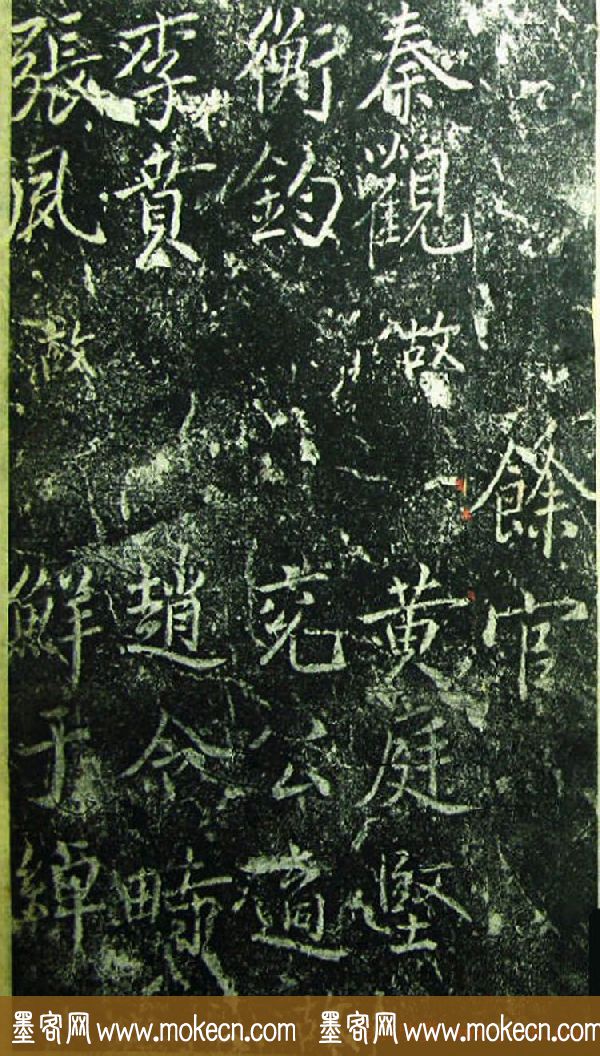 餘官
秦觀 故 黃庭堅
衡鈞 兖公適
李賁 趙令畤
張夙 故 鮮于綽
墨客网 www.mokecn.com 墨客网 www.mokecn.com